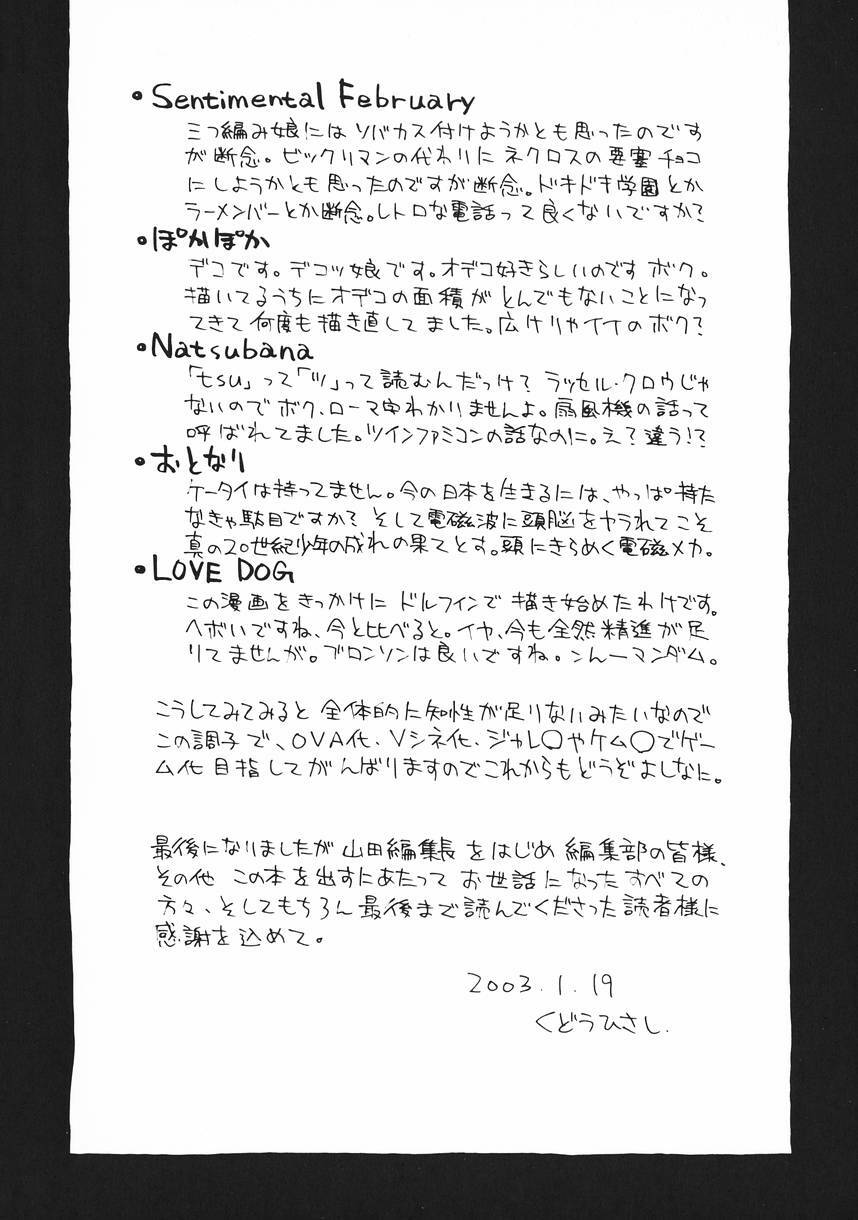 ・Sentimental February
三つ編み娘にはソバカス付けようかとも思ったのです
が断念。ビックリマンの代わりにネクロスの要塞チョコ
にしようかとも思ったのですが断念。ドキドキ学園とか
ラーメンバーとか断念。レトロな電話って良くないですか？
・ぽかぽか
デコです。デコッ娘です。オデコ好きらしいのですボク。
描いてるうちにオデコの面積がとんでもないことになっ
てきて何度も描き直してました。広けりゃイイのボク？
・Natsubana
「tsu」って「ツ」って読むんだっけ？ラッセル・クロウじゃ
ないのでボク、ローマ字わかりませんよ。扇風機の話って
呼ばれてました。ツインファミコンの話なのに。え？違う！？
・おとなり
ケータイは持ってません。今の日本を生きるには、やっぱ持た
なきゃ駄目ですか？そして電磁波に頭脳をヤラれてこそ
真の20世紀少年の成れの果てとす。頭にきらめく電磁メカ。
・LOVE DOG
この漫画をきっかけにドルフィンで描き始めたわけです。
ヘボいですね、今と比べると。イヤ、今も全然精進が足
りてませんが。ブロンソンは良いですね。うんーマンダム。
こうしてみてみると全体的に知性が足りないみたいなので
この調子で、OVA化、Vシネ化、ジャレ○やケム○でゲー
ム化目指してがんばりますのでこれからもどうぞよしなに。
最後になりましたが山田編集長をはじめ編集部の皆様、
その他この本を出すにあたってお世話になったすべての
方々、そしてもちろん最後まで読んでくださった読者様に
感謝を込めて。
2003.1.19
くどうひさし.